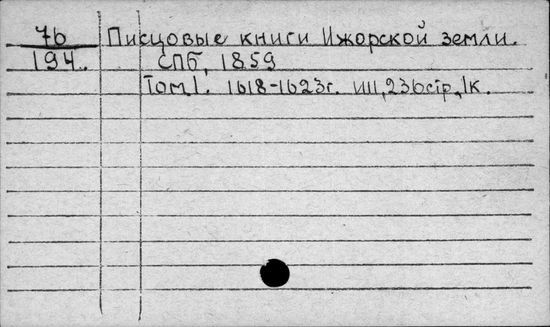 7б Писцовые книги Ижорской земли.
194. СПб, 1859
Том I. 1618-1623г. VIII, 236стр., 1к.